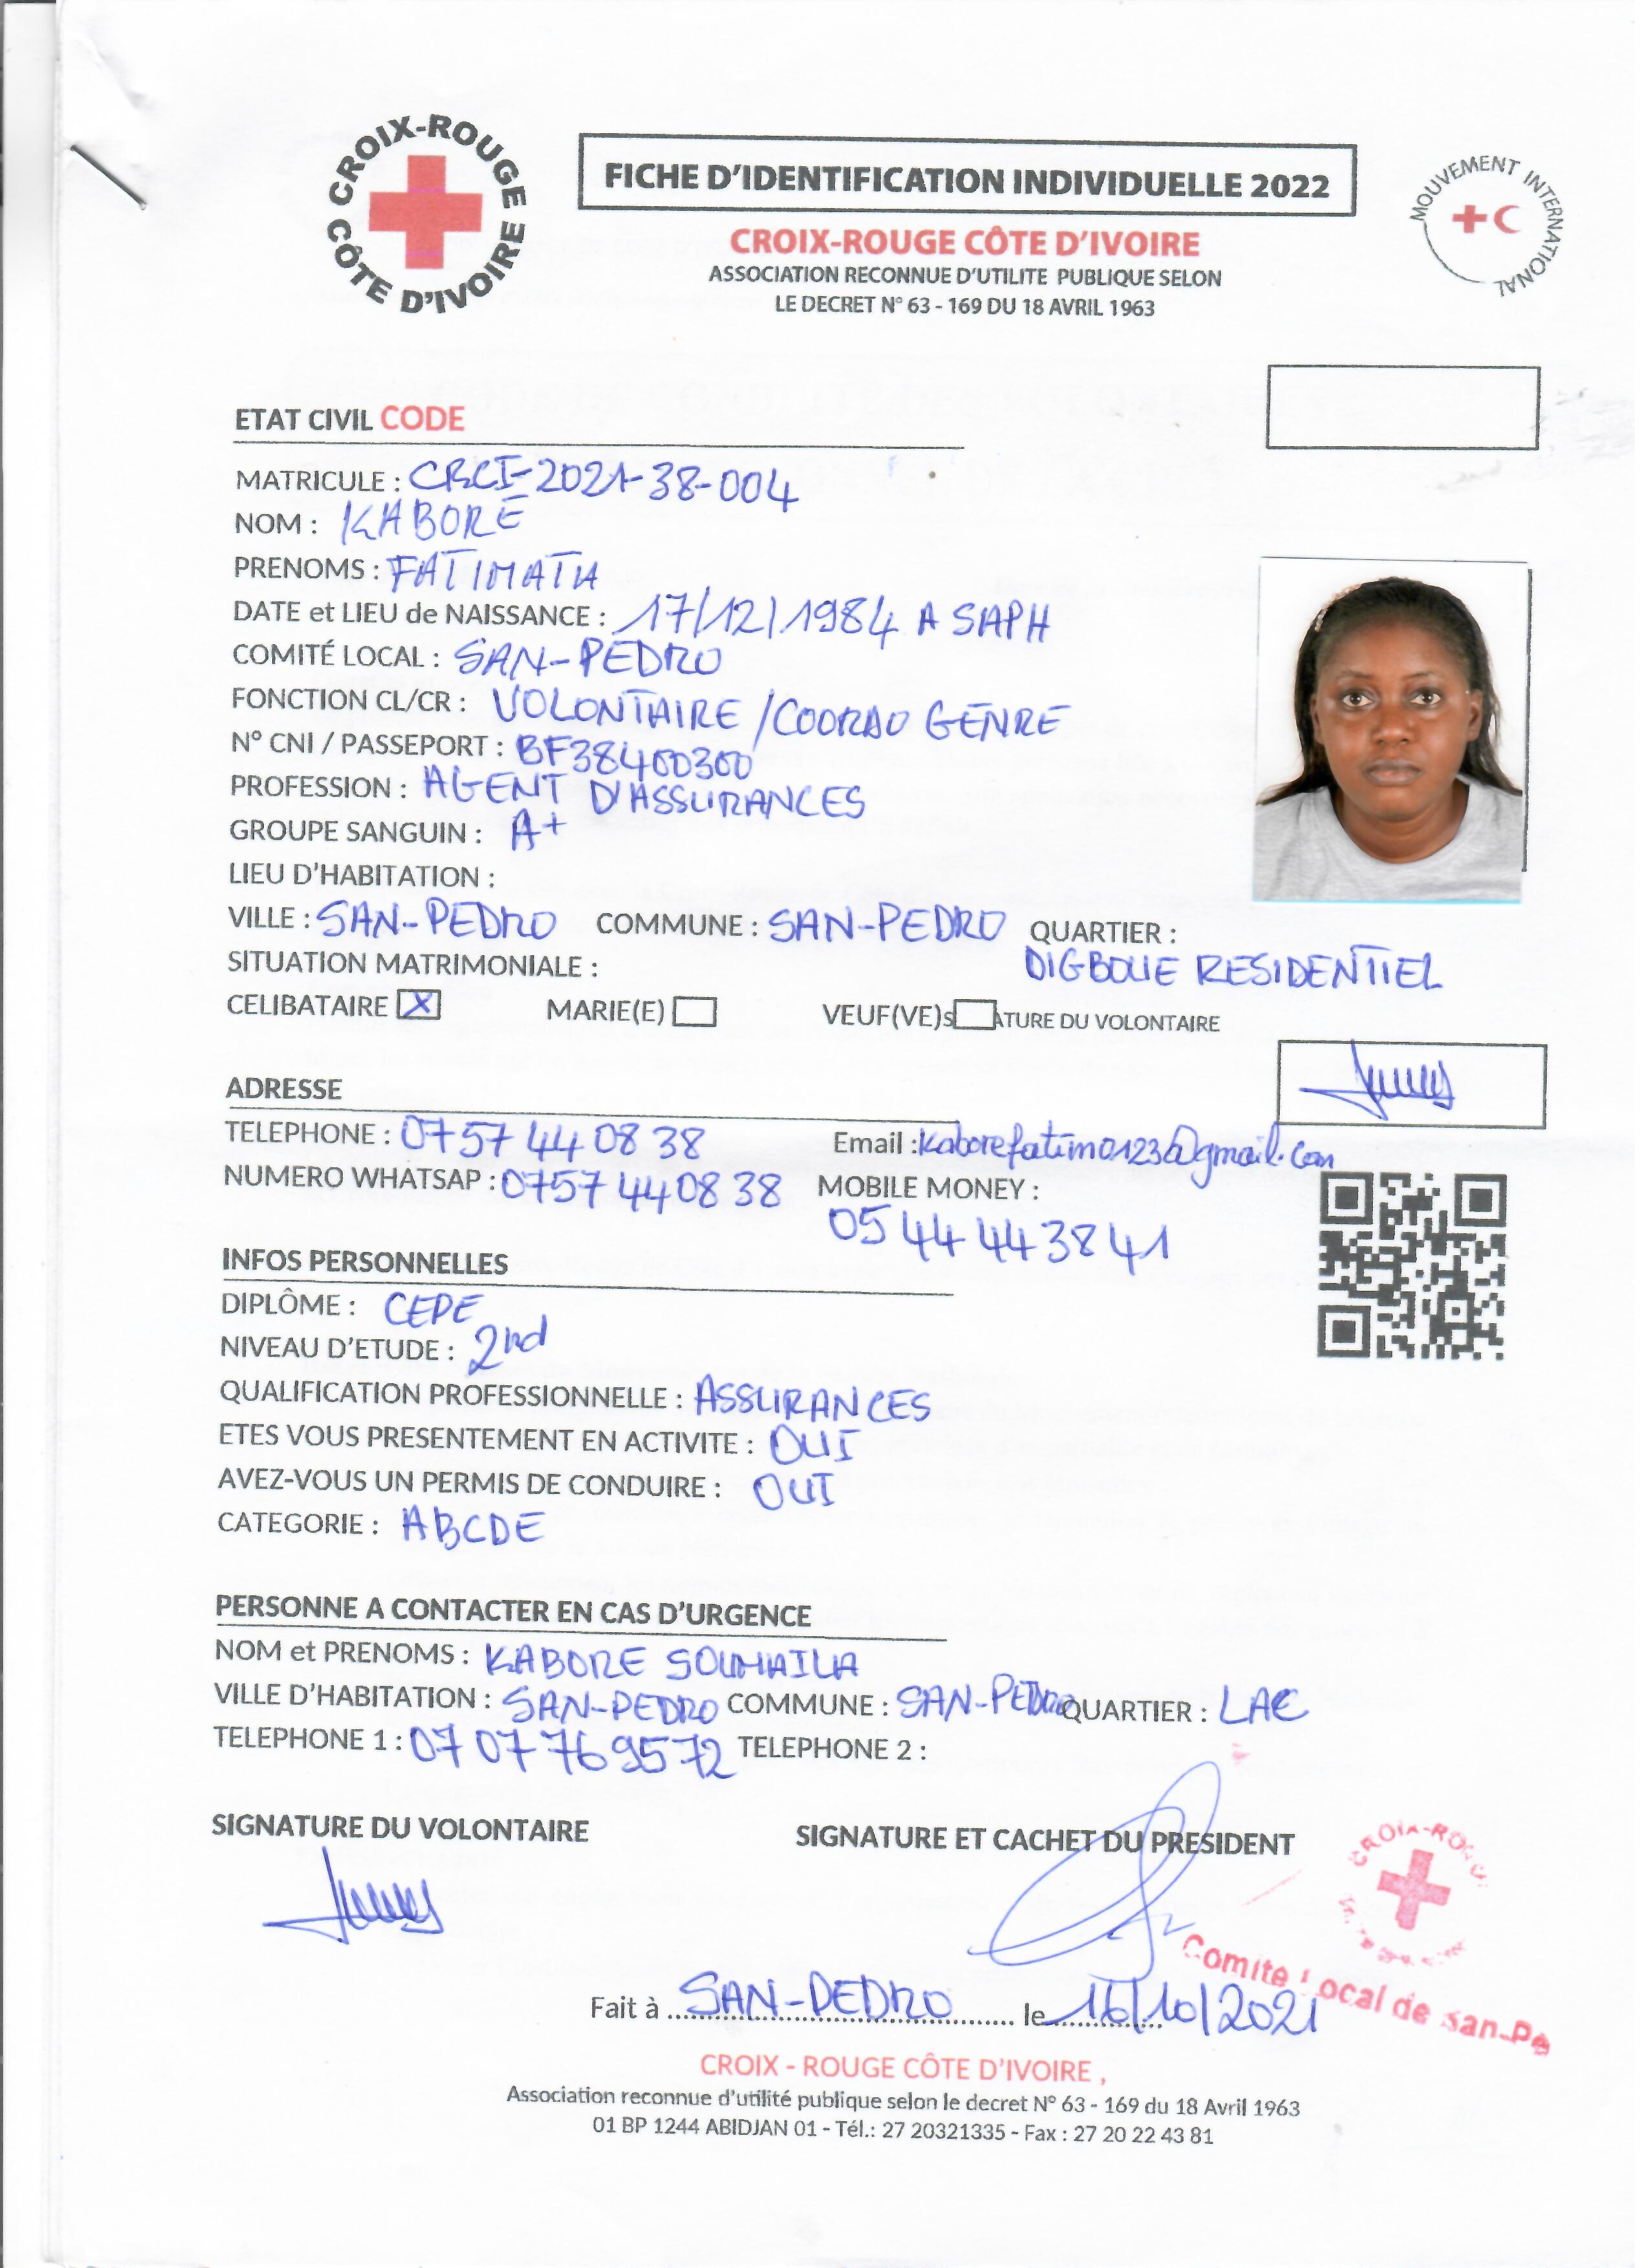 CROIX-ROUGE
CÔTE D'IVOIRE
FICHE D'IDENTIFICATION INDIVIDUELLE 2022
CROIX-ROUGE CÔTE D'IVOIRE
ASSOCIATION RECONNUE D'UTILITE PUBLIQUE SELON
LE DECRET N° 63 - 169 DU 18 AVRIL 1963
MOUVEMENT INTERNATIONAL
ETAT CIVIL CODE
MATRICULE : CRCI-2021-38-004
NOM : KABORE
PRENOMS : FATIMATA
DATE et LIEU de NAISSANCE : 17/12/1984 A SAPH
COMITÉ LOCAL : SAN-PEDRO
FONCTION CL/CR : VOLONTAIRE / COORDO GENRE
N° CNI / PASSEPORT : BF38400300
PROFESSION : AGENT D'ASSURANCES
GROUPE SANGUIN : A+
LIEU D'HABITATION :
VILLE : SAN-PEDRO COMMUNE : SAN-PEDRO QUARTIER : DIGBOUE RESIDENTIEL
SITUATION MATRIMONIALE :
CELIBATAIRE X MARIE(E) VEUF(VE)S ATURE DU VOLONTAIRE
ADRESSE
TELEPHONE : 0757 44 08 38 Email : kaborefatim0123@gmail.com
NUMERO WHATSAP : 0757 44 08 38 MOBILE MONEY : 05 44 44 38 41
INFOS PERSONNELLES
DIPLÔME : CEPE
NIVEAU D'ETUDE : 2nd
QUALIFICATION PROFESSIONNELLE : ASSURANCES
ETES VOUS PRESENTEMENT EN ACTIVITE : OUI
AVEZ-VOUS UN PERMIS DE CONDUIRE : OUI
CATEGORIE : ABCDE
PERSONNE A CONTACTER EN CAS D'URGENCE
NOM et PRENOMS : KABORE SOUMAILA
VILLE D'HABITATION : SAN-PEDRO COMMUNE : SAN-PEDRO QUARTIER : LAC
TELEPHONE 1 : 07 07 76 95 72 TELEPHONE 2 :
SIGNATURE DU VOLONTAIRE SIGNATURE ET CACHET DU PRESIDENT
CROIX-ROU
Comite Local de San-Pe
Fait à SAN-PEDRO le 16/10/2021
CROIX - ROUGE CÔTE D'IVOIRE ,
Association reconnue d'utilité publique selon le decret N° 63 - 169 du 18 Avril 1963
01 BP 1244 ABIDJAN 01 - Tél.: 27 20321335 - Fax : 27 20 22 43 81